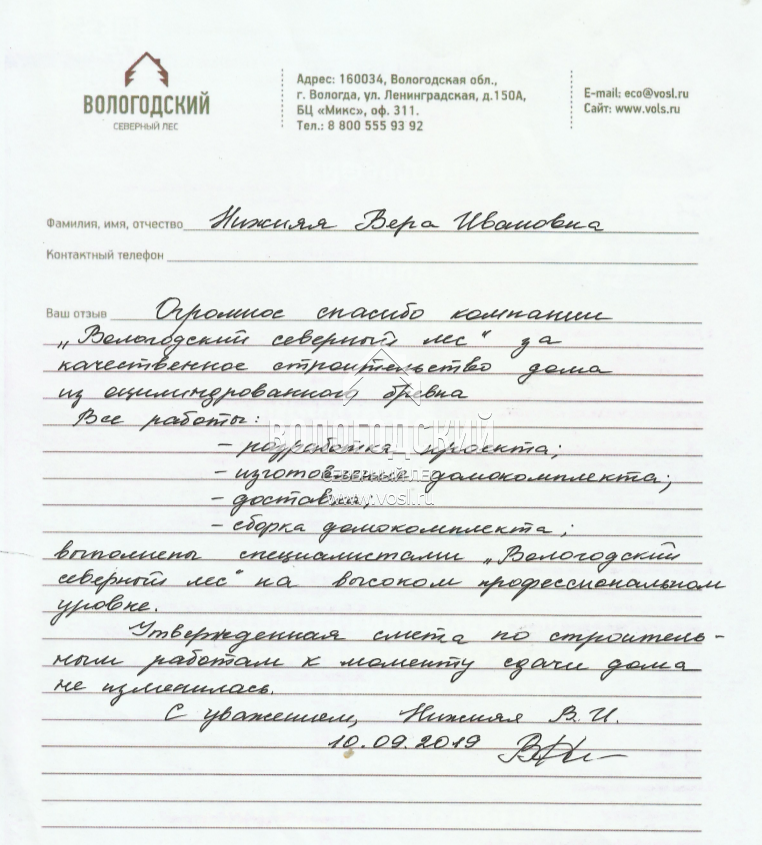 ВОЛОГОДСКИЙ
СЕВЕРНЫЙ ЛЕС
Адрес: 160034, Вологодская обл.,
г. Вологда, ул. Ленинградская, д.150А,
БЦ «Микс», оф. 311.
Тел.: 8 800 555 93 92
E-mail: eco@vosl.ru
Сайт: www.vols.ru
Фамилия, имя, отчество Нижняя Вера Ивановна
Контактный телефон
Ваш отзыв Огромное спасибо компании
„Вологодский северный лес" за
качественное строительство дома
из оцилиндрованного бревна
Все работы:
- разработка проекта;
- изготовление домокомплекта;
- доставка;
- сборка домокомплекта;
выполнены специалистами „Вологодский
северный лес" на высоком профессиональном
уровне.
Утвержденная смета по строитель-
ным работам к моменту сдачи дома
не изменилась.
С уважением, Нижняя В.И.
10.09.2019
ВОЛОГОДСКИЙ
СЕВЕРНЫЙ ЛЕС
www.vosl.ru